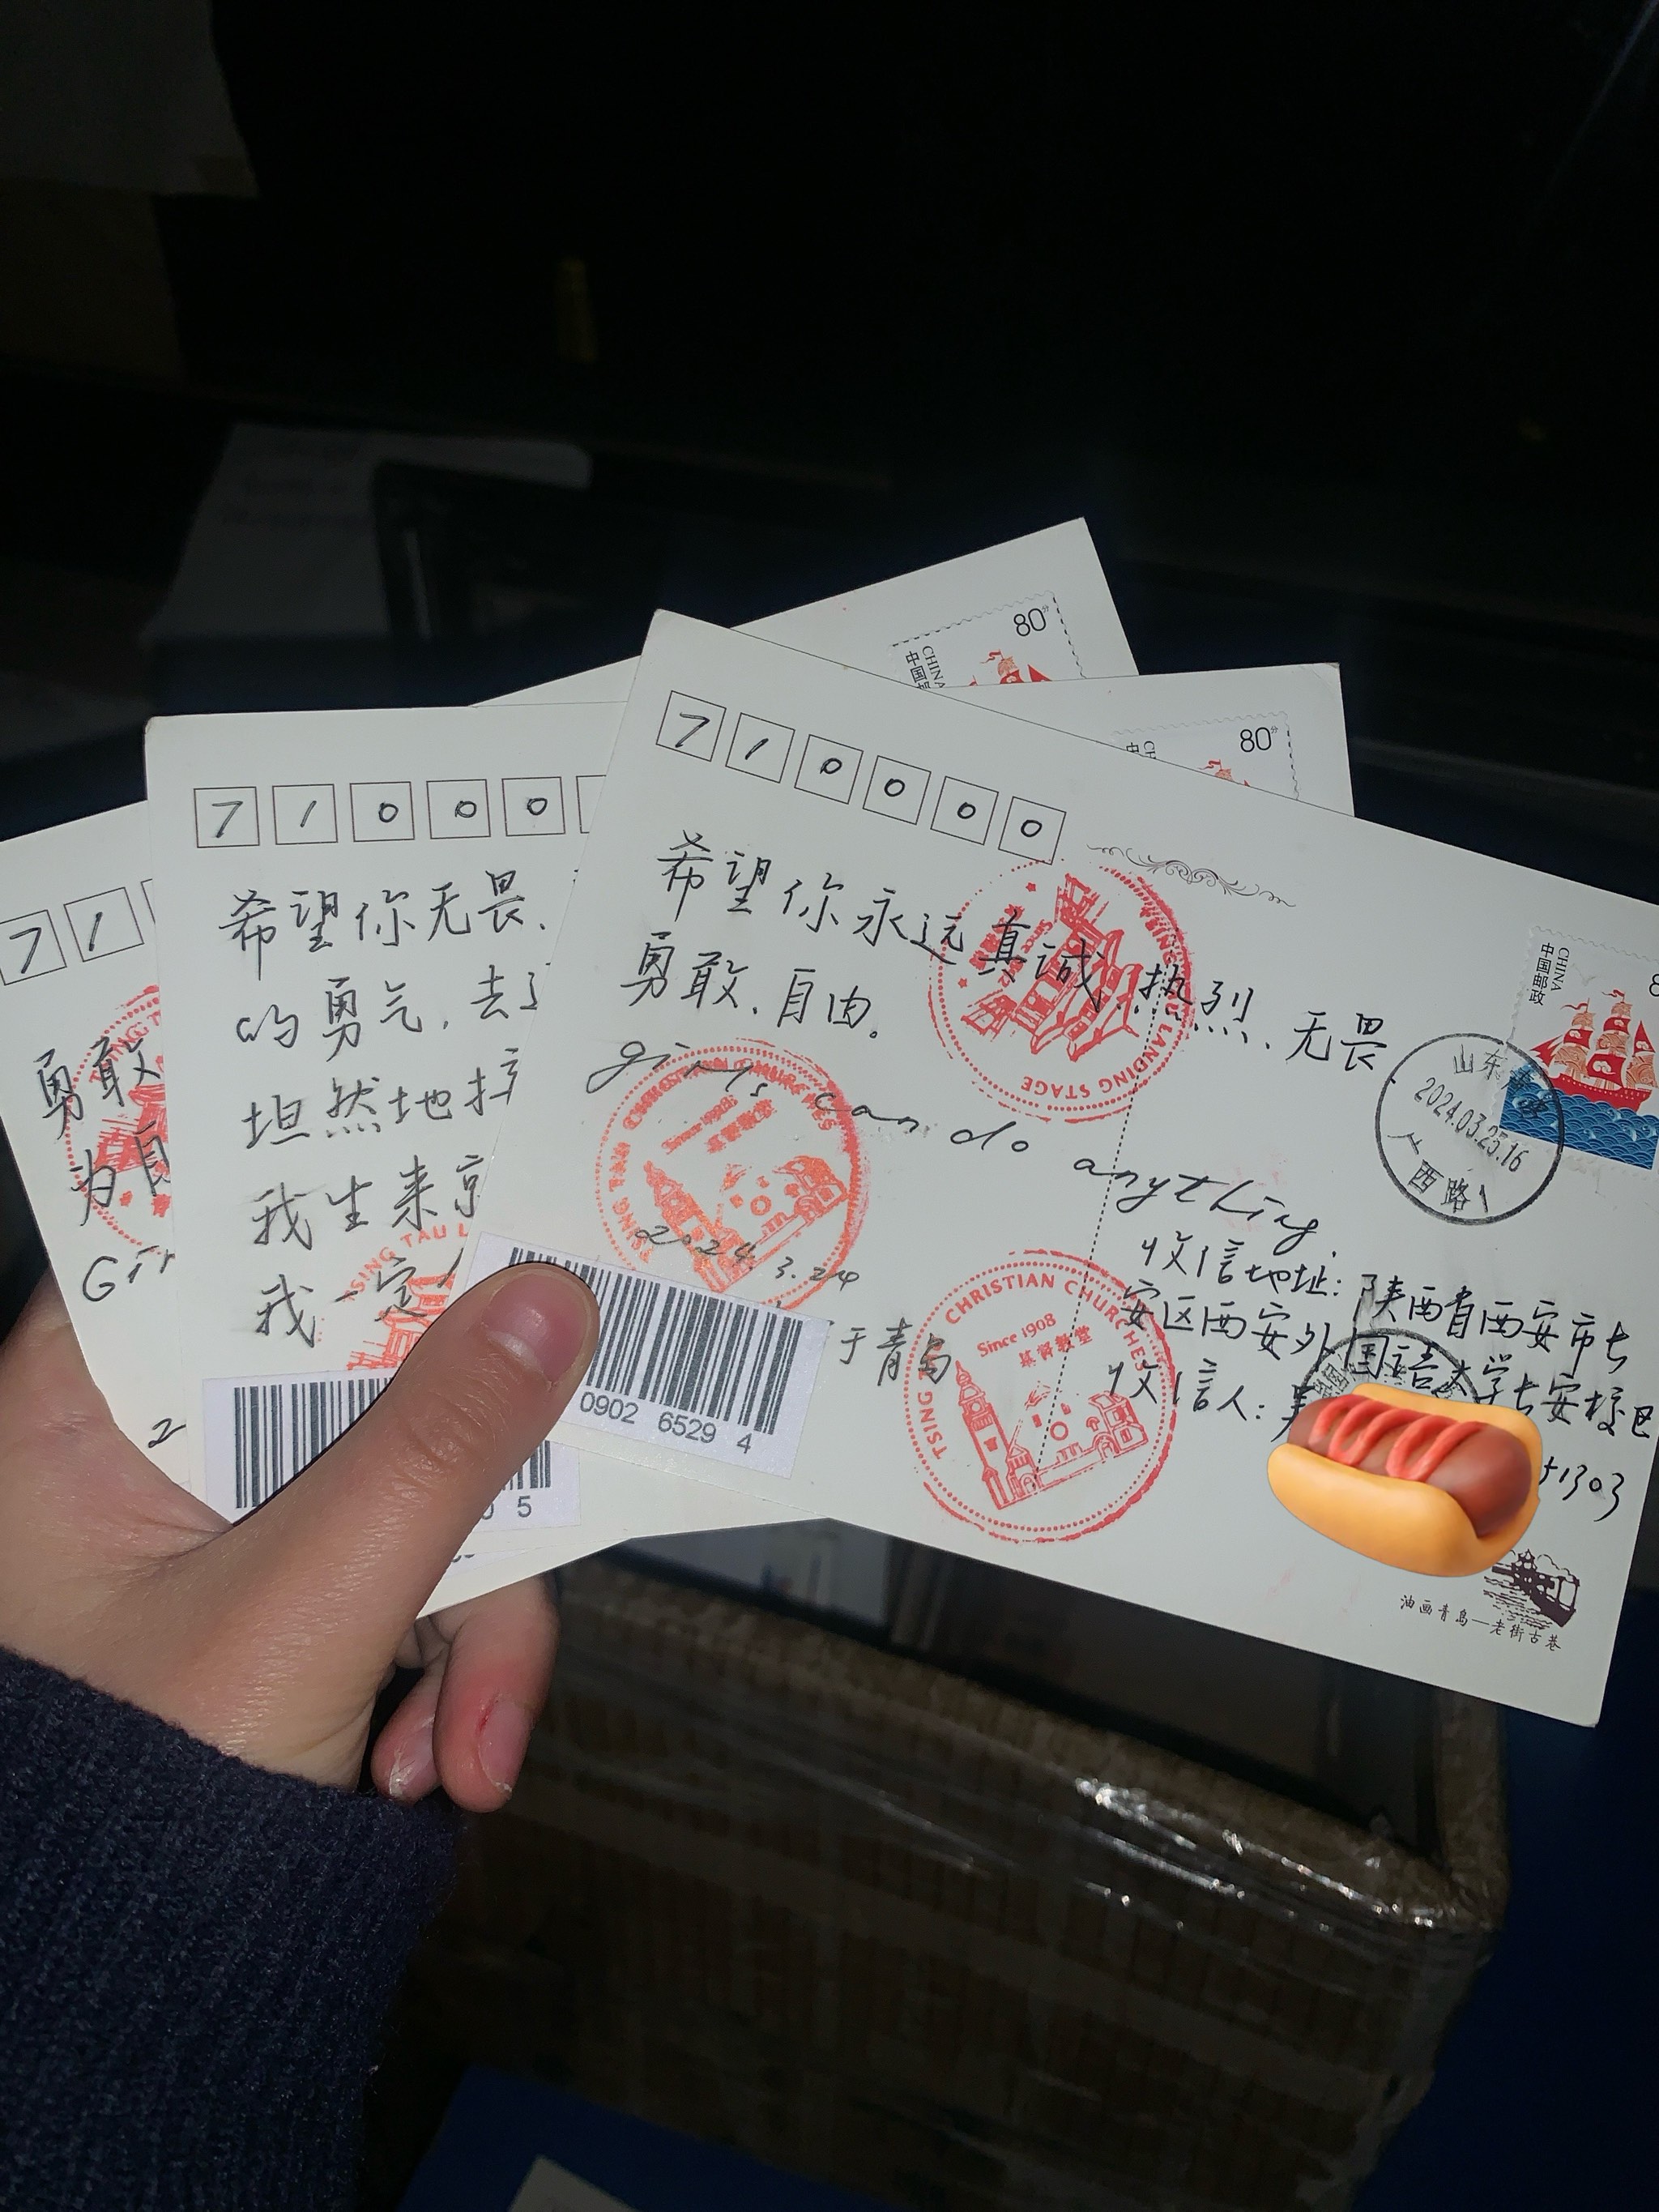 80分
CHINA
中国邮
80分
710000
希望你永远真诚、热烈、无畏、
勇敢、自由。
girls can do anything.
2024.3.24
于青岛
收信地址：陕西省西安市长
安区西安外国语大学长安校区
收信人：
1303
CHINA
中国邮政
8
山东青岛
2024.03.25.16
广西路1
TSING TAU LANDING STAGE
Since
TSING TAU CHRISTIAN CHURCHES
Since 1908
基督教堂
TSING T CHRISTIAN CHURCHES
Since 1908
基督教堂
0902 6529 4
油画青岛—老街古巷
71000
希望你无畏、
的勇气，去
坦然地
我生来
我一定
TSING TAU L
5
71
勇敢
为自
Gir
2